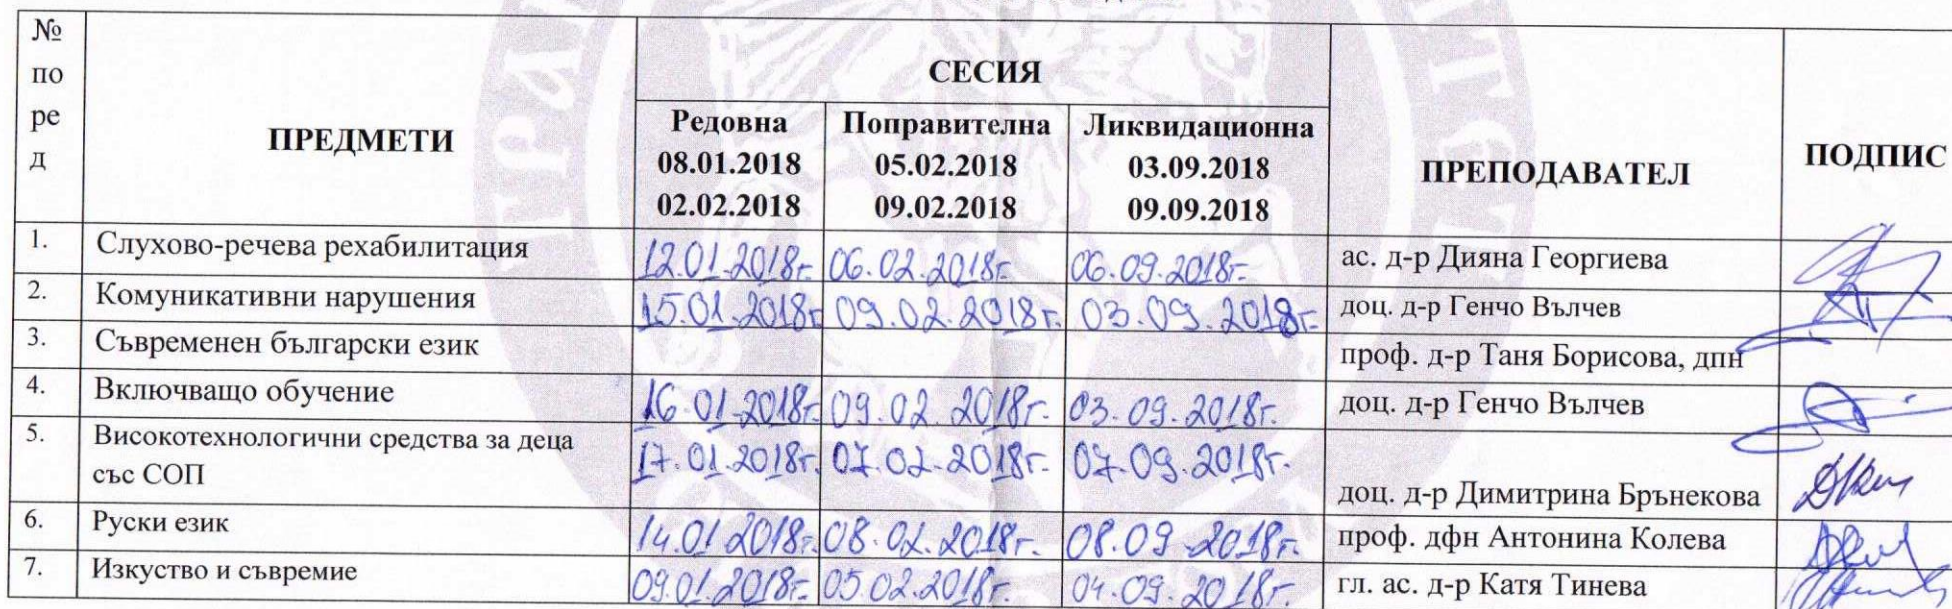 № по ред
ПРЕДМЕТИ
СЕСИЯ
Редовна 08.01.2018 02.02.2018
Поправителна 05.02.2018 09.02.2018
Ликвидационна 03.09.2018 09.09.2018
ПРЕПОДАВАТЕЛ
ПОДПИС
1. Слухово-речева рехабилитация 12.01.2018г. 06.02.2018г. 06.09.2018г. ас. д-р Дияна Георгиева
2. Комуникативни нарушения 15.01.2018г. 09.02.2018г. 03.09.2018г. доц. д-р Генчо Вълчев
3. Съвременен български език проф. д-р Таня Борисова, дпн
4. Включващо обучение 16.01.2018г. 09.02.2018г. 03.09.2018г. доц. д-р Генчо Вълчев
5. Високотехнологични средства за деца
със СОП 17.01.2018г. 07.02.2018г. 07.09.2018г. доц. д-р Димитрина Брънекова
6. Руски език 14.01.2018г. 08.02.2018г. 08.09.2018г. проф. дфн Антонина Колева
7. Изкуство и съвремие 09.01.2018г. 05.02.2018г. 04.09.2018г. гл. ас. д-р Катя Тинева